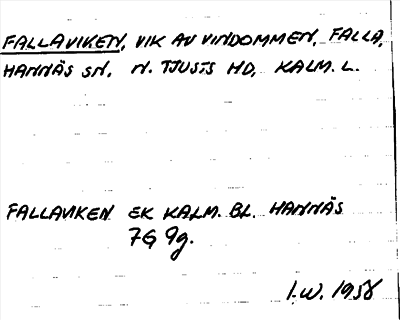 FALLAVIKEN, VIK AV VINDOMMEN, FALLA,
HANNÄS SN, N. TJUSTS HD, KALM. L.
FALLAVIKEN EK KALM. BL. HANNÄS
7G 9g.
I.W. 1958